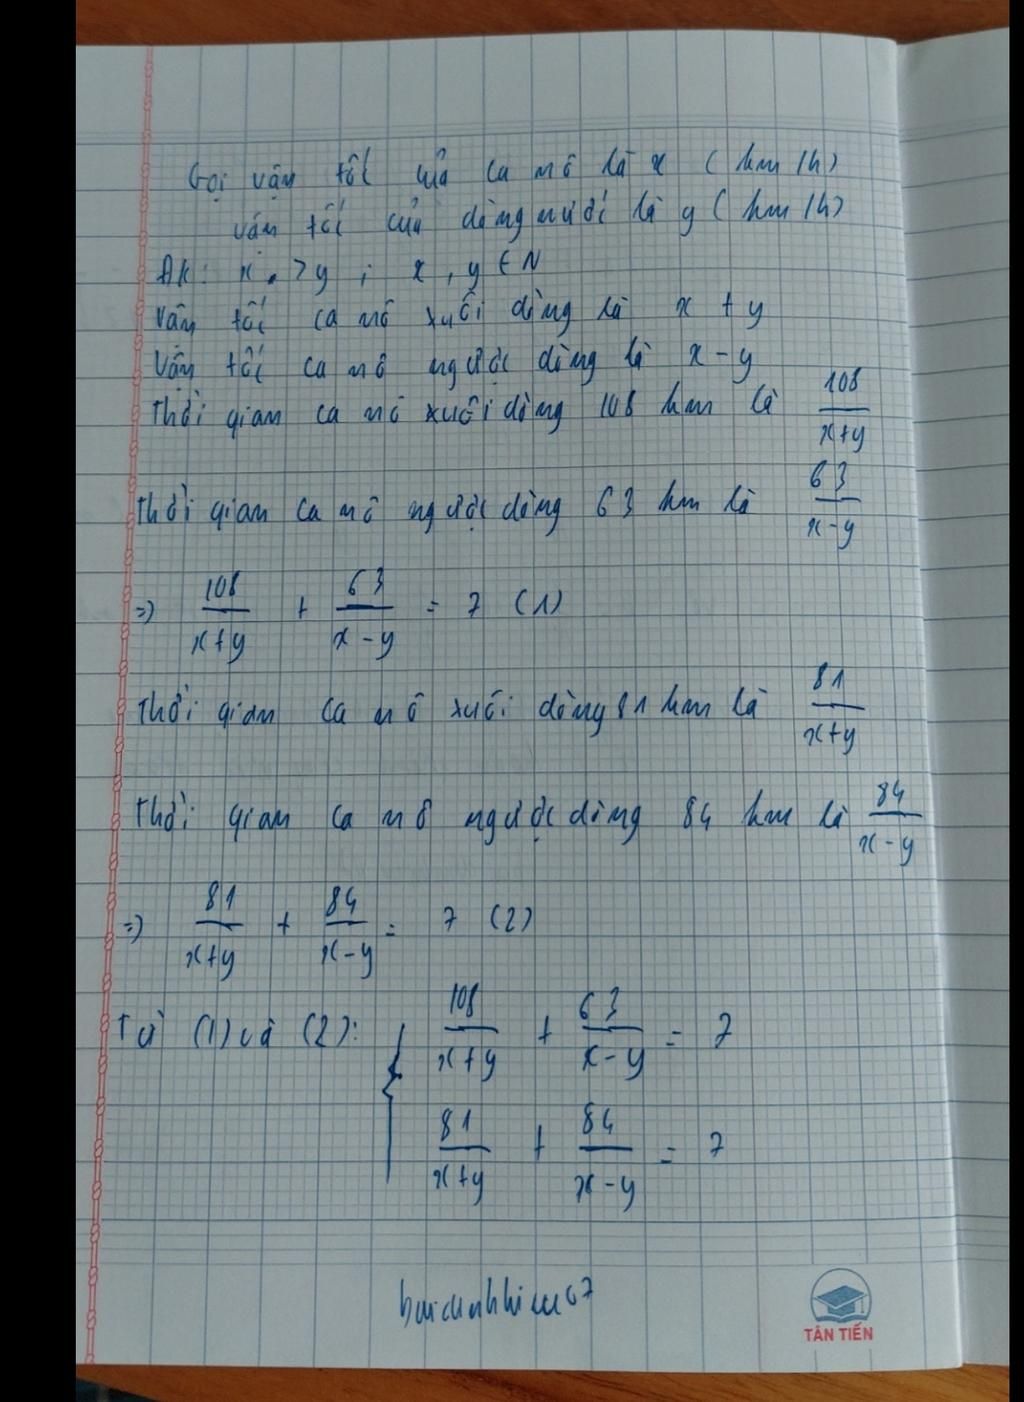 Gọi vận tốc của ca nô là x (km/h)
vận tốc của dòng nước là y (km/h)
ĐK: x > y ; x, y ∈ N
Vận tốc ca nô xuôi dòng là x + y
Vận tốc ca nô ngược dòng là x - y
Thời gian ca nô xuôi dòng 108 km là 108/(x+y)
Thời gian ca nô ngược dòng 63 km là 63/(x-y)
=> 108/(x+y) + 63/(x-y) = 7 (1)
Thời gian ca nô xuôi dòng 81 km là 81/(x+y)
Thời gian ca nô ngược dòng 84 km là 84/(x-y)
=> 81/(x+y) + 84/(x-y) = 7 (2)
Từ (1) và (2): { 108/(x+y) + 63/(x-y) = 7
81/(x+y) + 84/(x-y) = 7
TÂN TIẾN